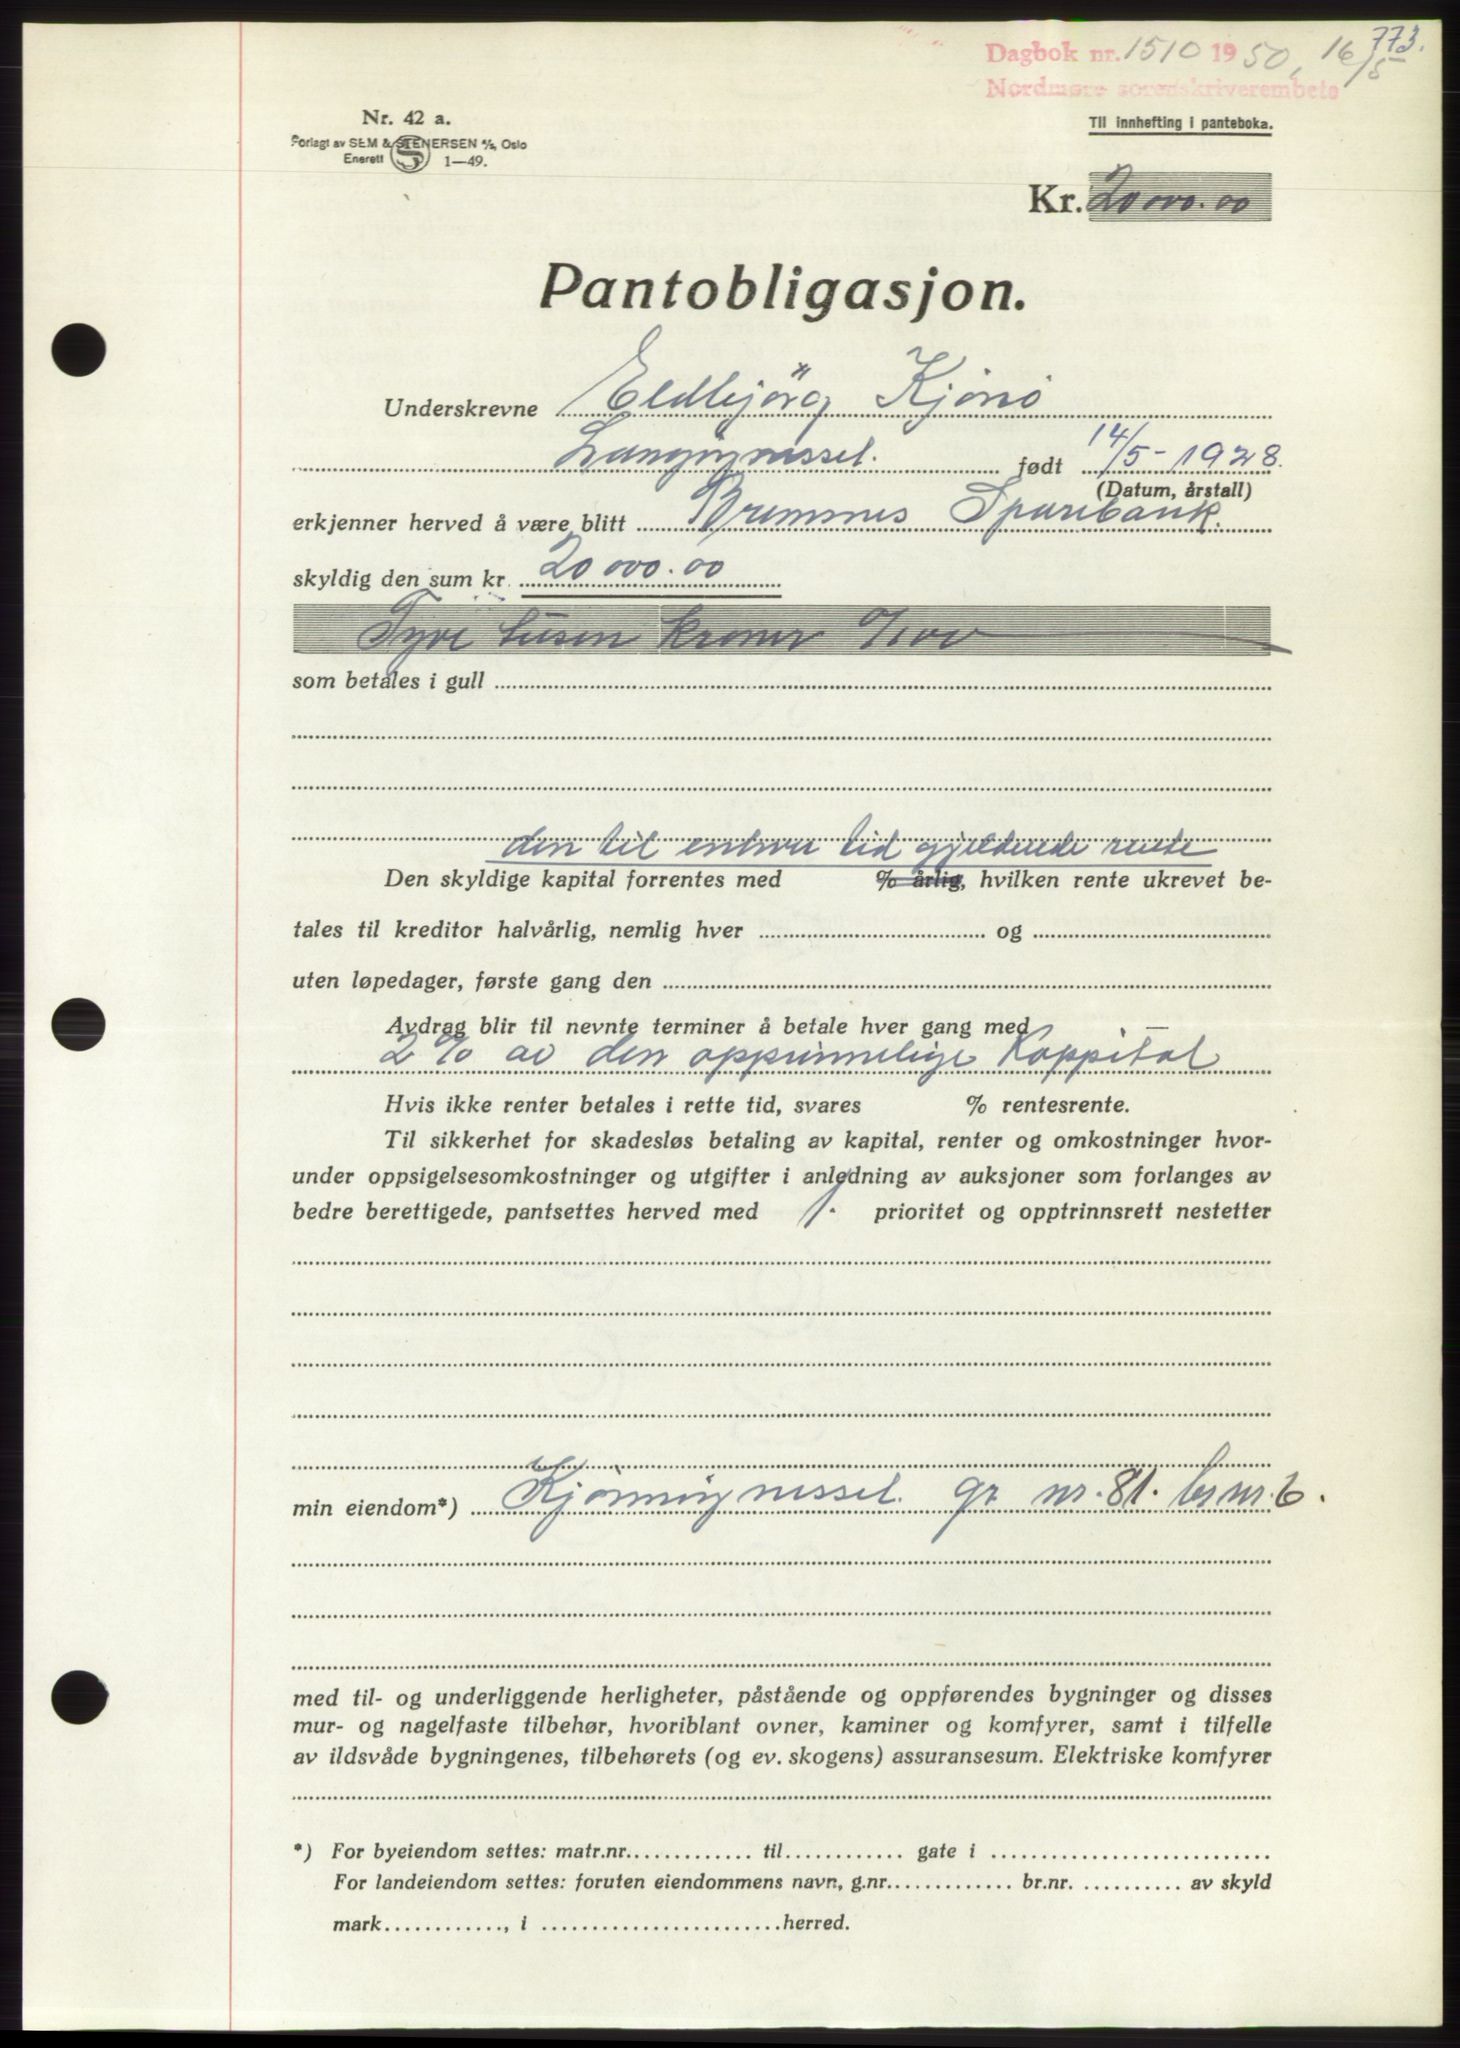 773.
Dagbok nr. 1510 1950, 16/5
Nordmøre sorenskriverembete
Nr. 42 a.
Forlagt av SEM & STENERSEN A/S, Oslo
Enerett S 1—49.
Til innhefting i panteboka.
Kr. 20000.00
Pantobligasjon.
Underskrevne Eldbjörg Kjönö
Langöyneset. født 14/5-1928.
(Datum, årstall)
erkjenner herved å være blitt Bremsnes Sparebank.
skyldig den sum kr. 20000.00
Tyve tusen kroner 0/100
som betales i gull
den til enhver tid gjeldende rente
Den skyldige kapital forrentes med % årlig, hvilken rente ukrevet be-
tales til kreditor halvårlig, nemlig hver og
uten løpedager, første gang den
Avdrag blir til nevnte terminer å betale hver gang med
2% av den oppinnelige Kappital
Hvis ikke renter betales i rette tid, svares % rentesrente.
Til sikkerhet for skadesløs betaling av kapital, renter og omkostninger hvor-
under oppsigelsesomkostninger og utgifter i anledning av auksjoner som forlanges av
bedre berettigede, pantsettes herved med 1. prioritet og opptrinnsrett nestetter
min eiendom*) gr nr. 81. br nr. 6.
med til- og underliggende herligheter, påstående og oppførendes bygninger og disses
mur- og nagelfaste tilbehør, hvoriblant ovner, kaminer og komfyrer, samt i tilfelle
av ildsvåde bygningenes, tilbehørets (og ev. skogens) assuransesum. Elektriske komfyrer
*) For byeiendom settes: matr.nr. til gate i
For landeiendom settes: foruten eiendommens navn, g.nr. br.nr. av skyld
mark , i herred.